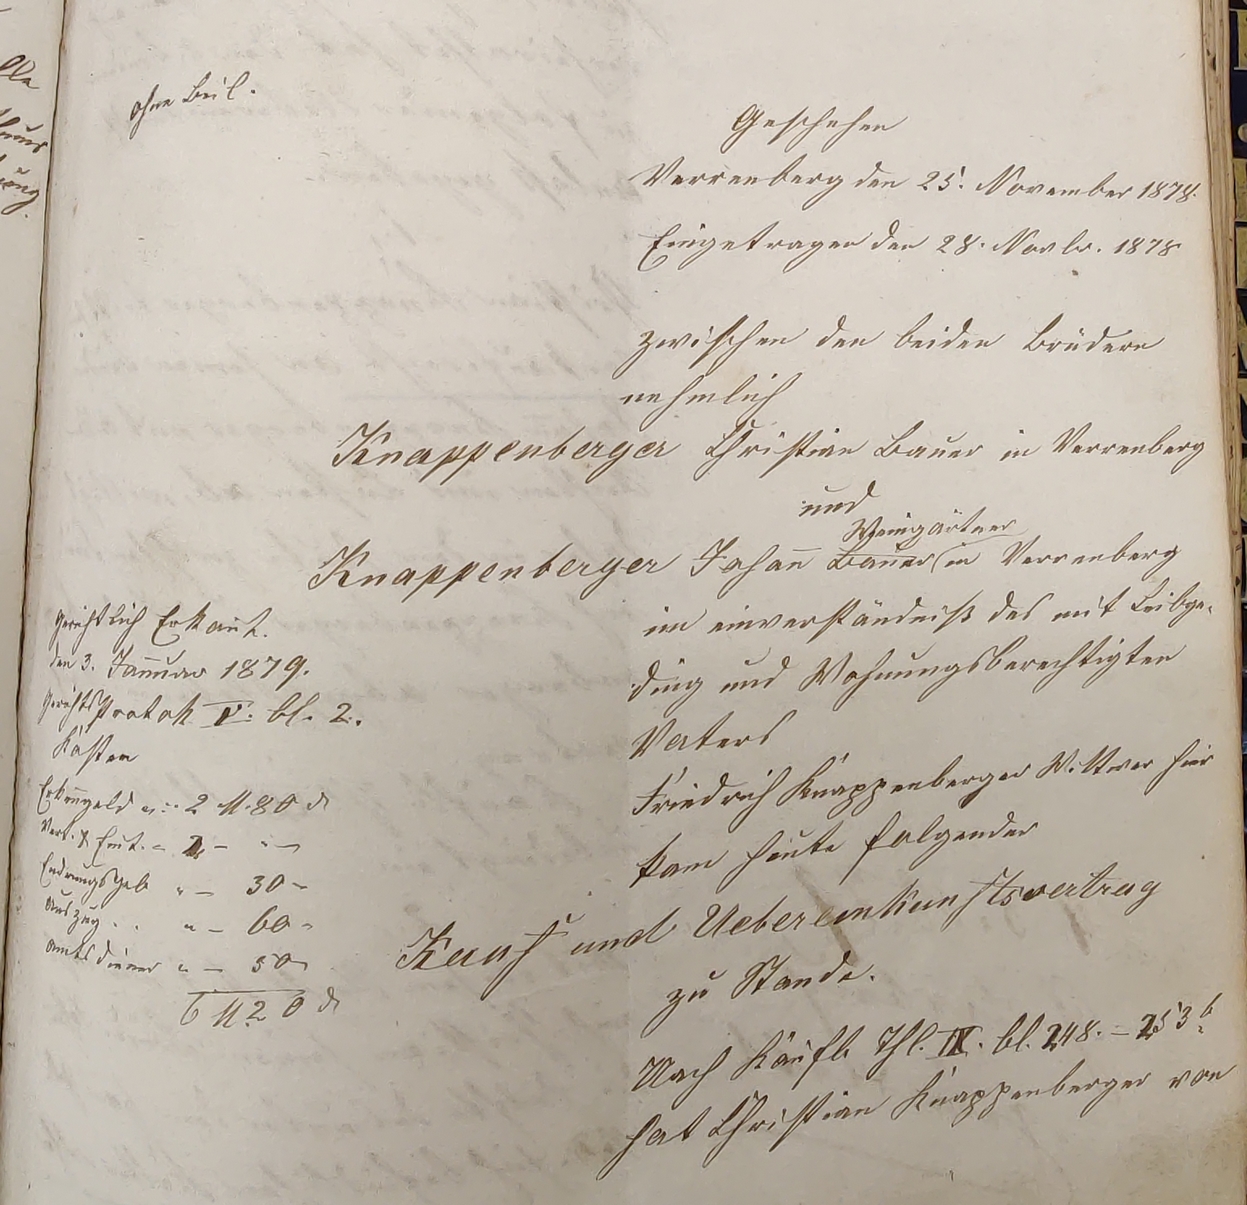 ohne Beil.
Geschehen
Verrenberg den 25. November 1878.
Eingetragen den 28. Novbr. 1878
zwischen den beiden Brüdern
nehmlich
Knappenberger Christian Bauer in Verrenberg
und
Weingärtner
Knappenberger Johann Bauer in Verrenberg
im einverständniß des mit Leibge-
ding und Wohnungsberechtigten
Vaters
Friedrich Knappenberger Wittwer hier
kam heute folgender
Kauf und Uebereinkunftsvertrag
zu Stande.
Nach Kaufb. Thl. IX. bl. 248. – 253 b
hat Christian Knappenberger von
Gerichtlich Erkant.
den 3. Januar 1879.
Gerichts Protok V. bl. 2.
Kosten
Erkenngeld „ : 2 M. 80 d
2 –
30 –
Auszug . . „ – 60 „
Amtsdiener „ – 50 „
6 M 20 d